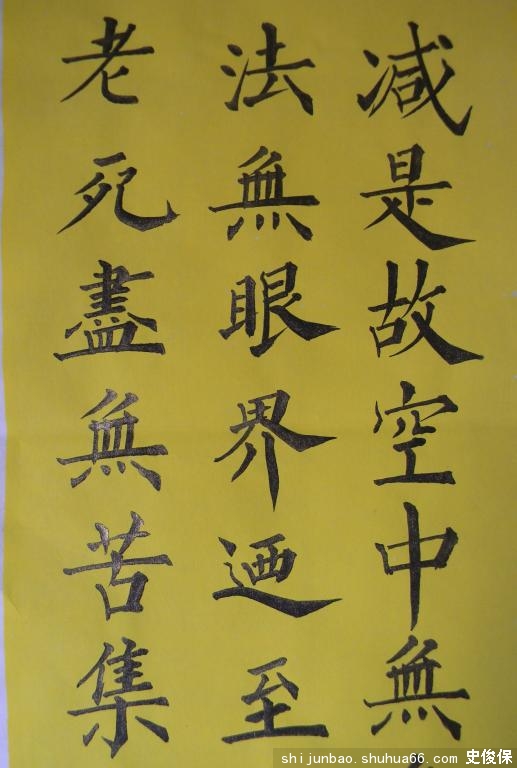 减是故空中無
法無眼界迺至
老死盡無苦集
shijunbao.shuhua66.com 史俊保